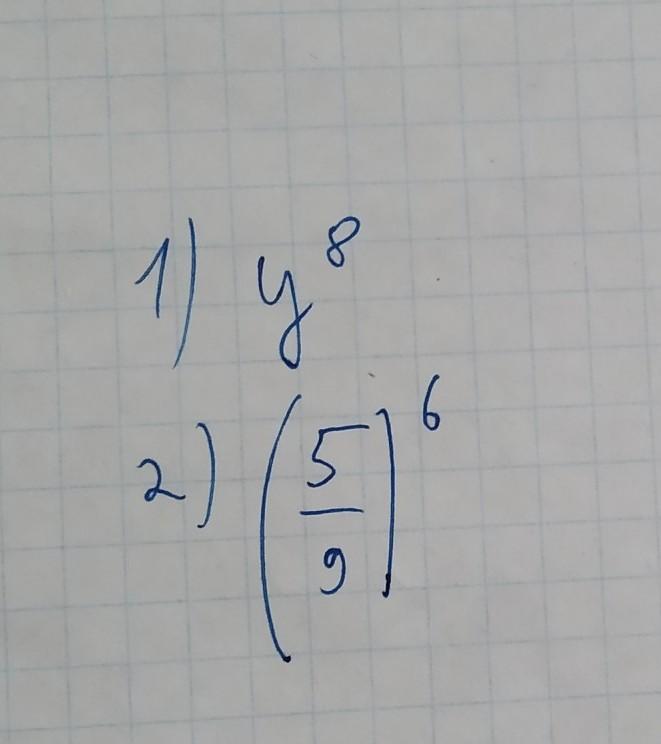 1) y⁸
2) (5/9)⁶